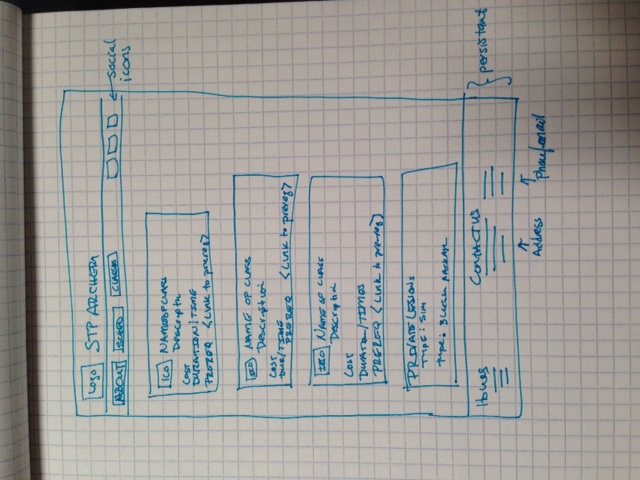 Logo STP ARCHERY
ABOUT SCHED CLASSES
social
icons
ICO NAME OF CLASS
Description
COST
DURATION/TIME
PREREQ <Link to prereq>
ICO NAME OF CLASS
Description
COST
DUR/TIME
PREREQ <Link to prereq>
ICO NAME OF CLASS
Description
COST
DURATION/TIMES
PREREQ <Link to prereq>
PRIVATE LESSONS
TYPE: SIM
TYPE:
Hours CONTACT US
persistent
Address
phone/email